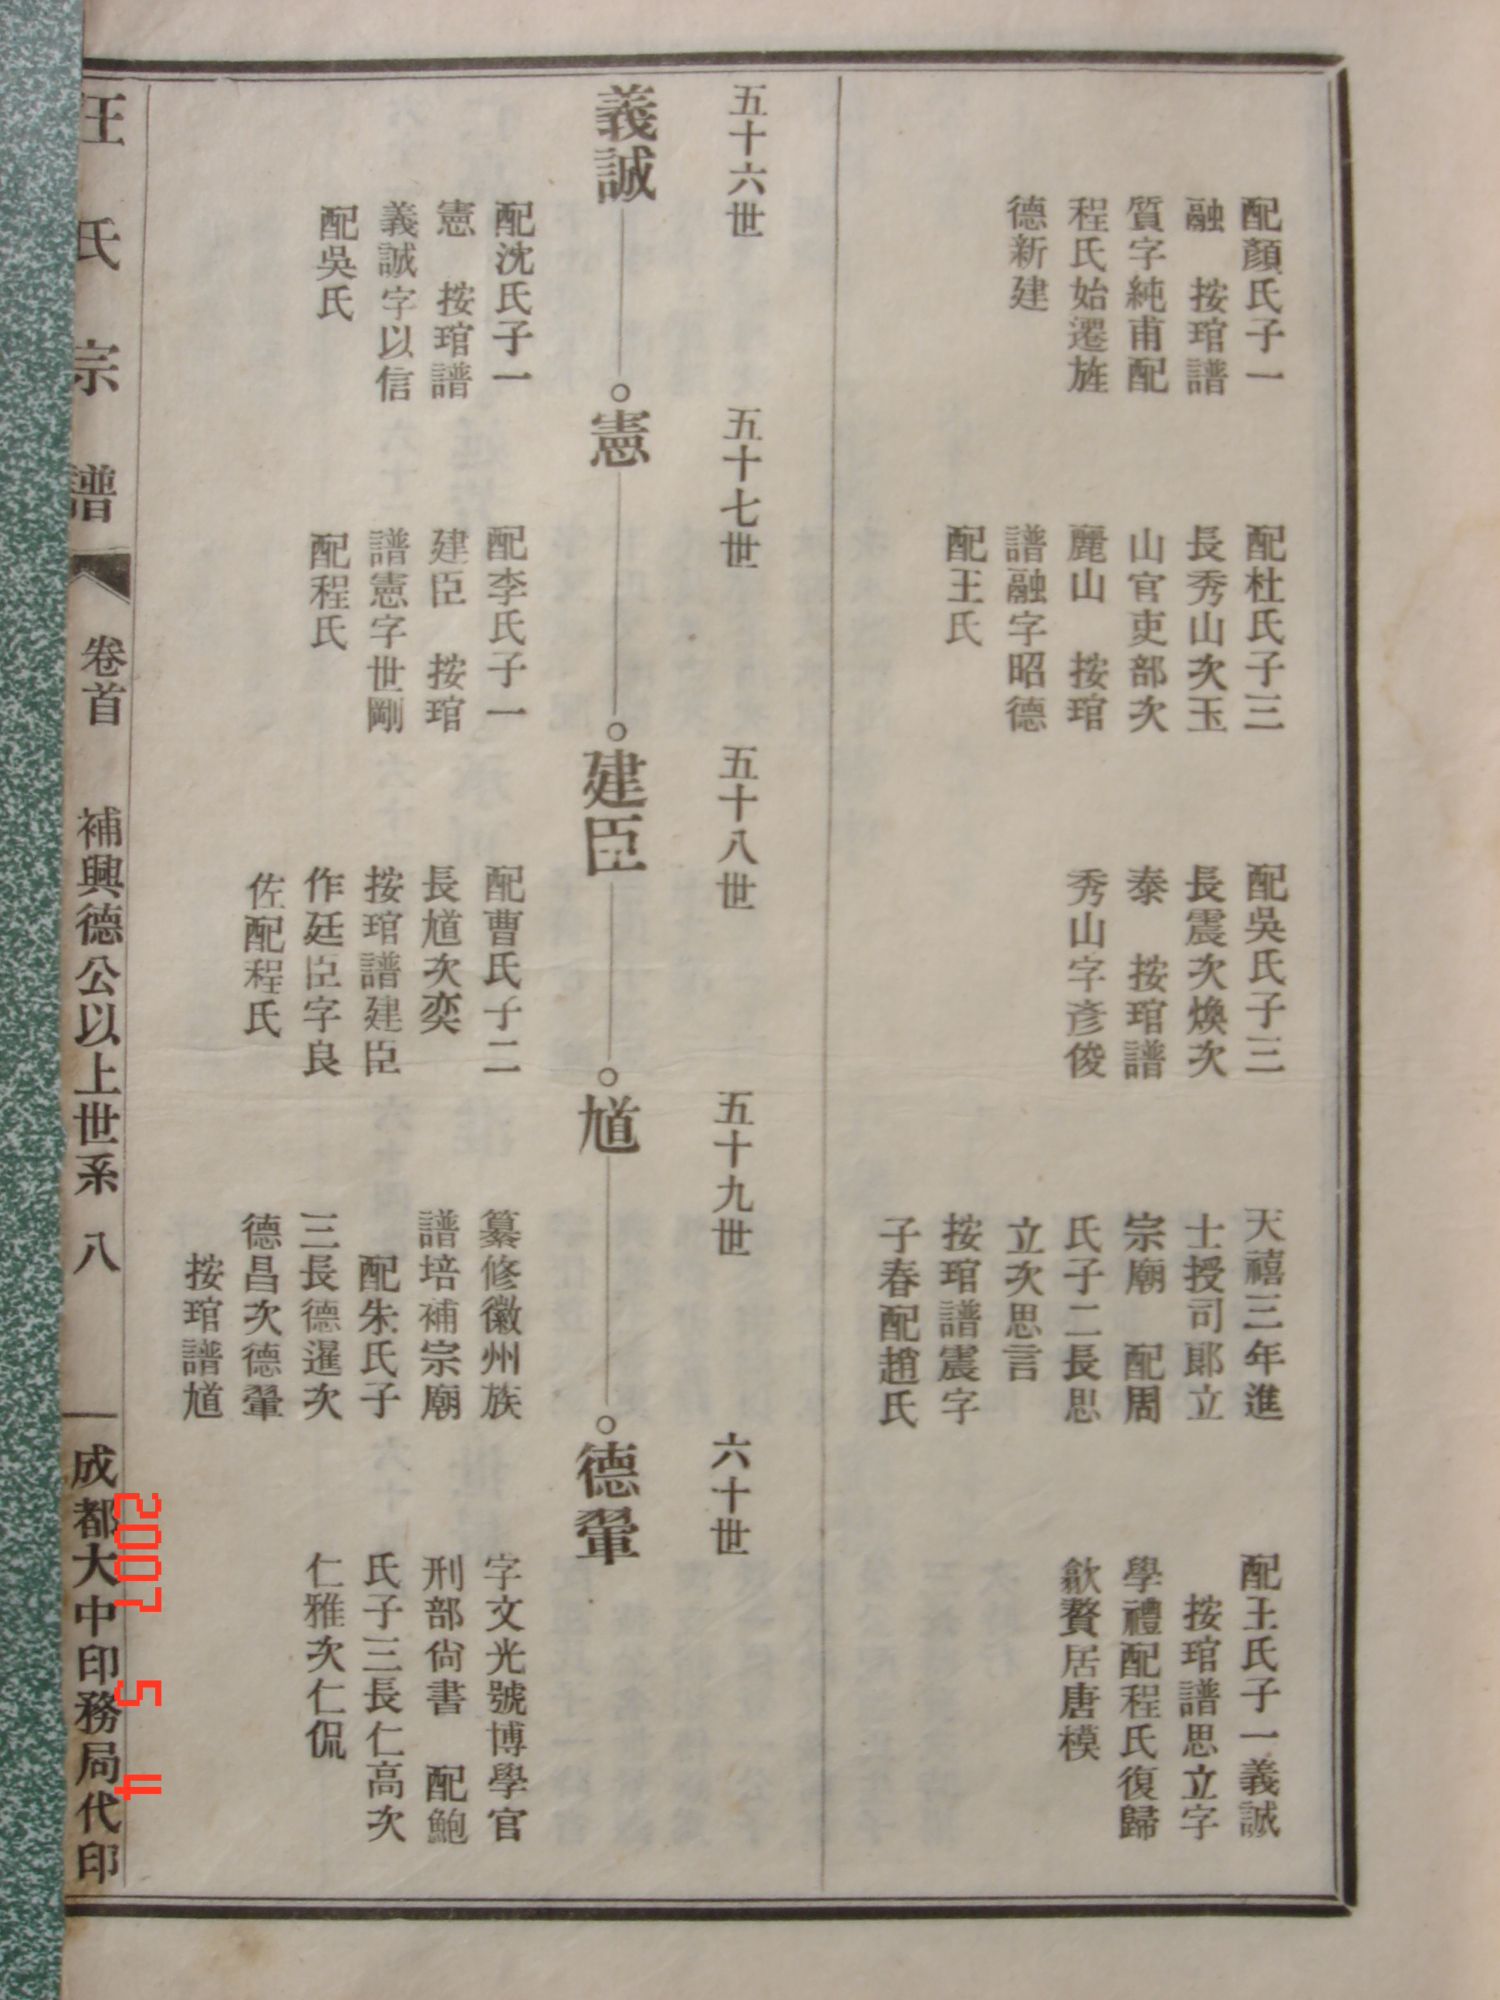 配顏氏子一
融　按琯譜
質字純甫配
程氏始遷旌
德新建
配杜氏子三
長秀山次玉
山官吏部次
麗山　按琯
譜融字昭德
配王氏
配吳氏子三
長震次煥次
泰　按琯譜
秀山字彥俊
天禧三年進
士授司郎立
宗廟　配周
氏子二長思
立次思言
按琯譜震字
子春配趙氏
配王氏子一義誠
按琯譜思立字
學禮配程氏復歸
歙贅居唐模
五十六世
五十七世
五十八世
五十九世
六十世
義誠
憲
建臣
馗
德翬
配沈氏子一
憲　按琯譜
義誠字以信
配吳氏
配李氏子一
建臣　按琯
譜憲字世剛
配程氏
配曹氏子二
長馗次奕
按琯譜建臣
作廷臣字良
佐配程氏
纂修徽州族
譜培補宗廟
配朱氏子
三長德暹次
德昌次德翬
按琯譜馗
字文光號博學官
刑部尙書　配鮑
氏子三長仁高次
仁雅次仁侃
汪氏宗譜
卷首
補興德公以上世系　八
成都大中印務局代印
2007 5 4